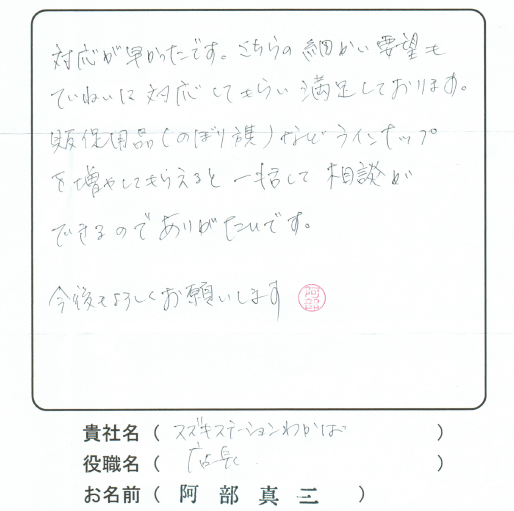 対応が早かったです。こちらの細かい要望も
ていねいに対応してもらい満足しております。
販促用品(のぼり旗)などラインナップ
を増やしてもらえると一括して相談が
できるのでありがたいです。
今後もよろしくお願いします 阿部
貴社名 ( スズキステーションわかば )
役職名 ( 店長 )
お名前 ( 阿部真三 )